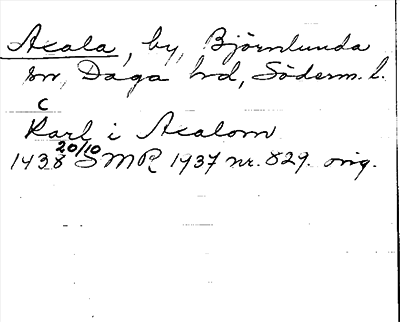 Acala, by, Björnlunda
sn, Daga hd, Söderm. l.
c
Karl i Acalom
1438 20/10 SMR 1937 nr. 829. orig.